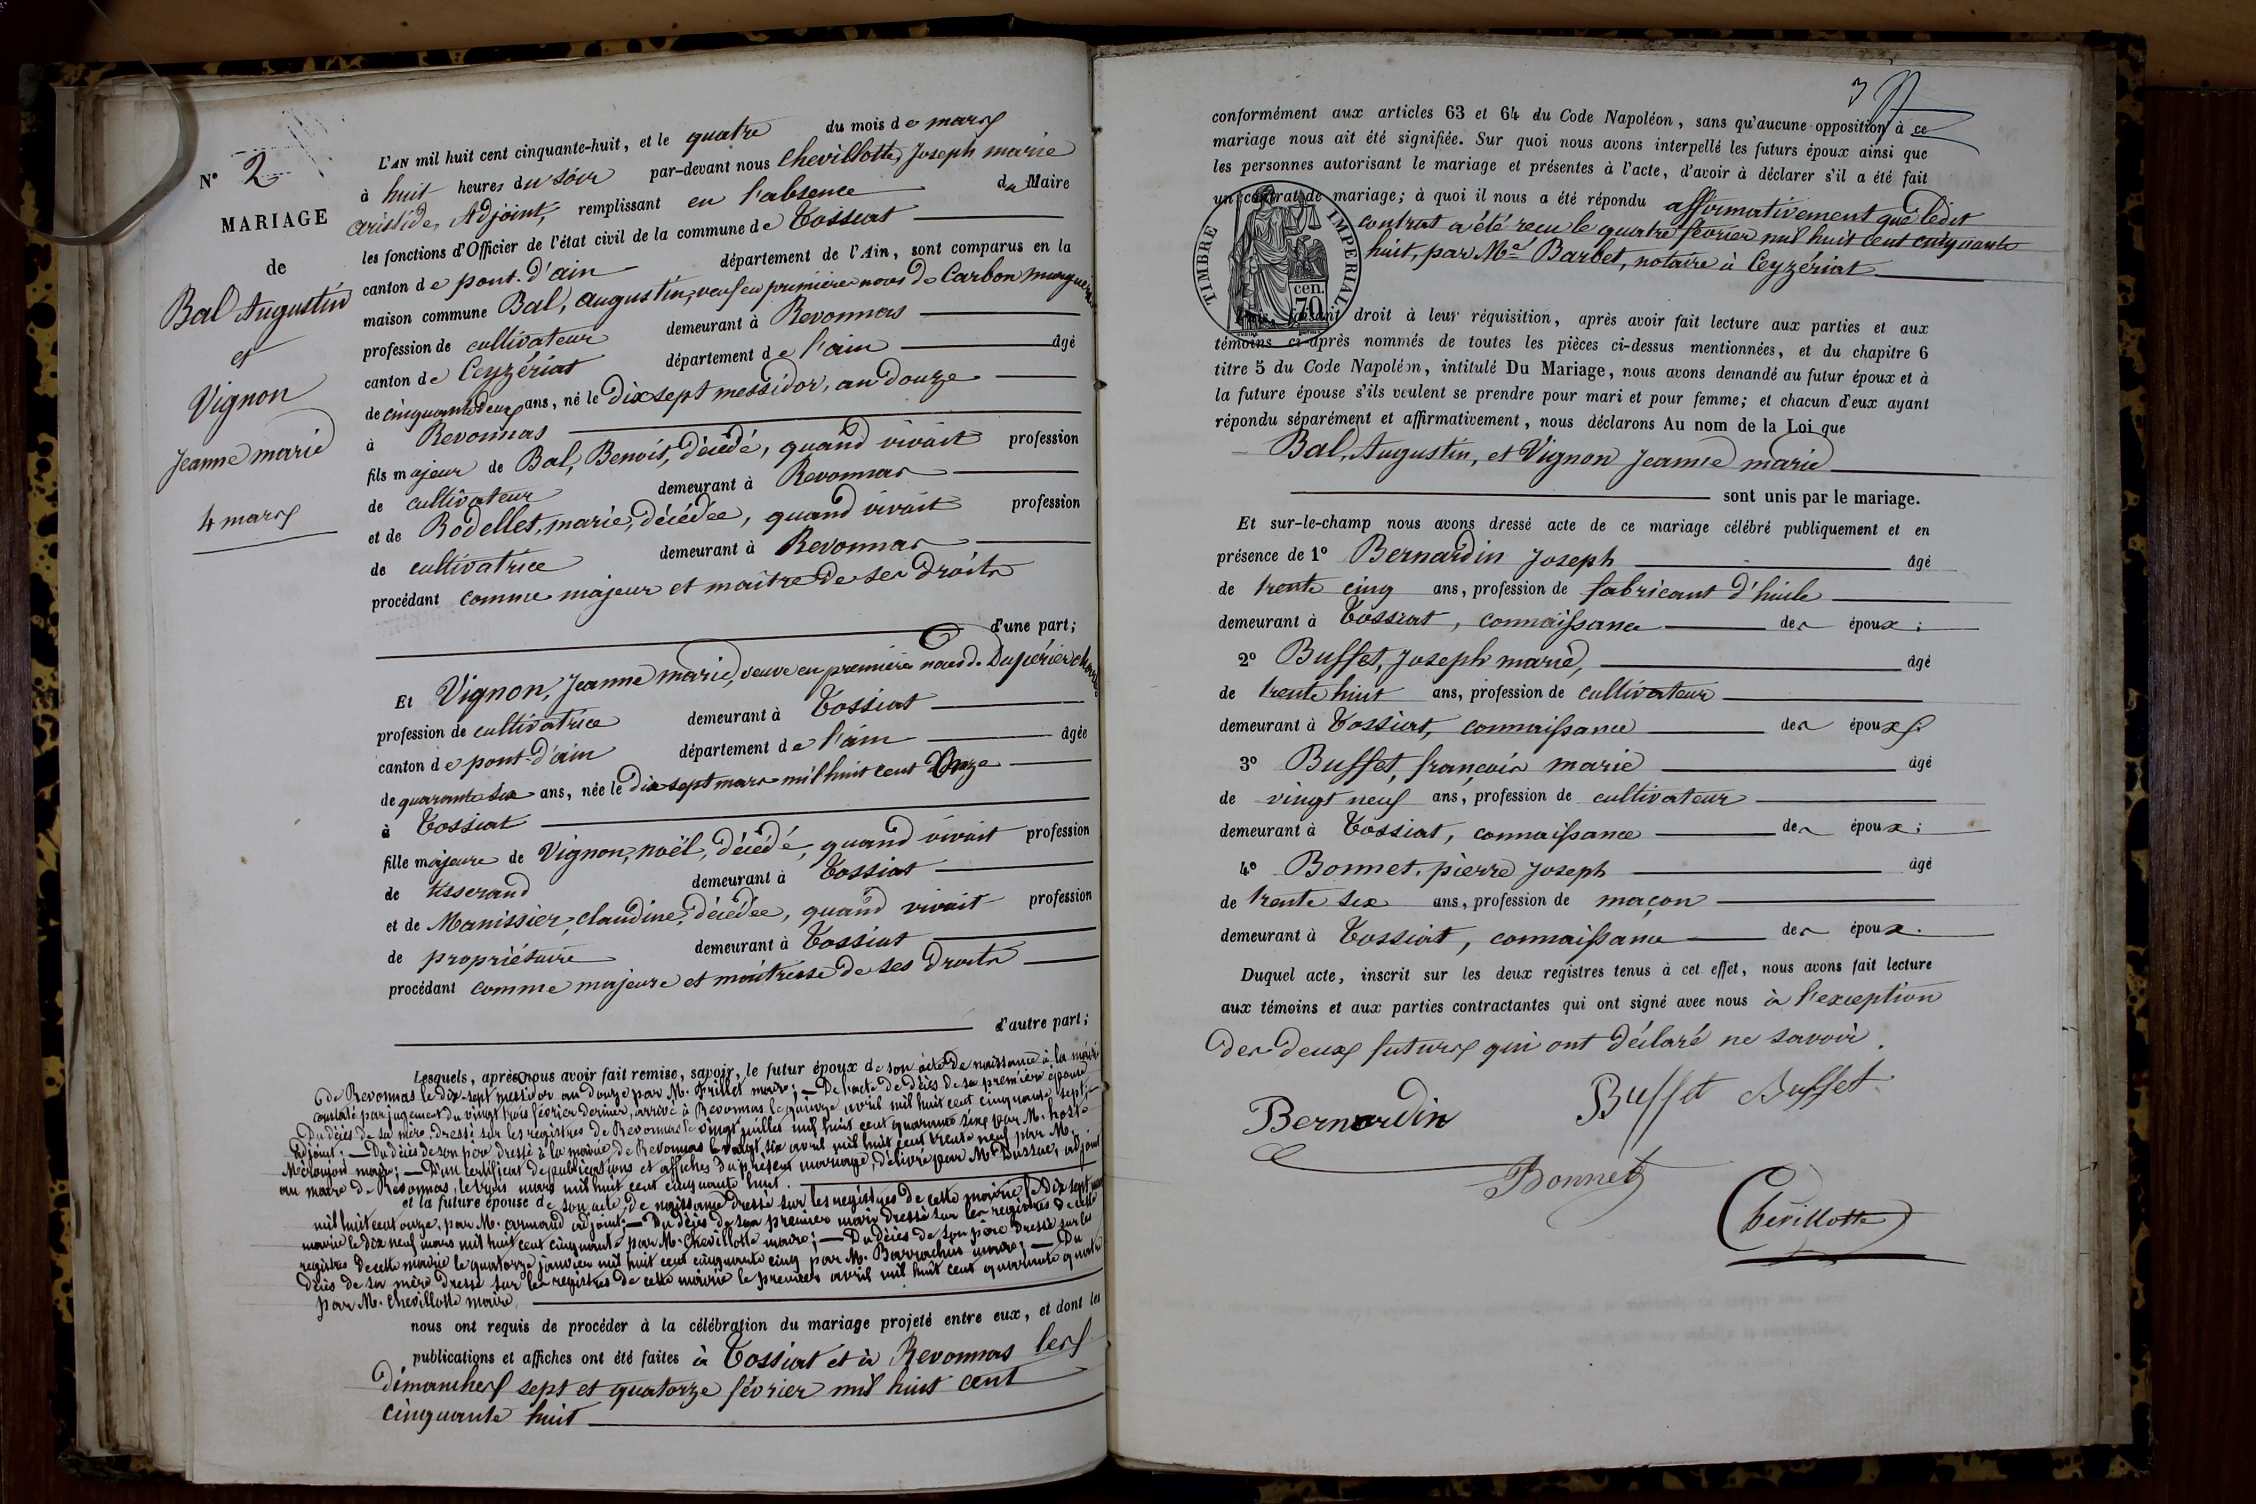 N° 2
MARIAGE
de
Bal Augustin
et
Vignon
Jeanne marie
4 mars
L'AN mil huit cent cinquante-huit, et le quatre du mois de mars
à huit heures du soir par-devant nous Chevillotte, Joseph marie
aristide, Adjoint, remplissant en l'absence du Maire
les fonctions d'Officier de l'état civil de la commune de Tossiat
canton de pont-d'ain département de l'Ain, sont comparus en la
maison commune Bal, augustin, veuf en premières noces de Carbon marguerite
profession de cultivateur demeurant à Revonnas
canton de Ceyzériat département de l'ain âgé
de cinquante deux ans, né le Dix sept messidor, an douze
à Revonnas
fils majeur de Bal, Benoit, décédé, quand vivait profession
de cultivateur demeurant à Revonnas
et de Rodellet, marie, décédée, quand vivait profession
de cultivatrice demeurant à Revonnas
procédant comme majeur et maître de ses droits
d'une part;
Et Vignon, Jeanne marie, veuve en première noce de Dupérier
profession de cultivatrice demeurant à Tossiat
canton de pont-d'ain département de l'ain âgée
de quarante six ans, née le dix sept mars mil huit cent Onze
à Tossiat
fille majeure de Vignon, noël, décédé, quand vivait profession
de tisserand demeurant à Tossiat
et de Manissier, claudine, décédée, quand vivait profession
de propriétaire demeurant à Tossiat
procédant comme majeure et maîtresse de ses droits
d'autre part;
Lesquels, après nous avoir fait remise, savoir, le futur époux de son acte de naissance à la mairie
de Revonnas le dix-sept messidor an douze par M. Frillet maire; — De l'acte de décès de sa première épouse
constaté par jugement du vingt trois février dernier, arrivé à Revonnas le quinze avril mil huit cent cinquante sept; —
Du décès de sa mère dressé sur les registres de Revonnas le vingt juillet mil huit cent quarante six par M.
adjoint; — Du décès de son père dressé à la mairie de Revonnas le vingt six avril mil huit cent trente neuf par M.
maire; — D'un certificat de publications et affiches du présent mariage, délivré par M. Dussuc, adjoint
au maire de Revonnas, le trois mars mil huit cent cinquante huit.
et la future épouse de son acte de naissance dressé sur les registres de cette mairie le Dix sept mars
mil huit cent onze, par M. armand adjoint; — Du décès de son premier mari dressé sur les registres de cette
mairie le dix neuf mars mil huit cent cinquante par M. Chevillotte maire; — Du décès de son père dressé sur les
registres de cette mairie le quatorze janvier mil huit cent cinquante cinq par M. Barrachin maire; — Du
décès de sa mère dressé sur les registres de cette mairie le premier avril mil huit cent quarante quatre
par M. Chevillotte maire
nous ont requis de procéder à la célébration du mariage projeté entre eux, et dont les
publications et affiches ont été faites à Tossiat et à Revonnas les
dimanches sept et quatorze février mil huit cent
cinquante huit
3
conformément aux articles 63 et 64 du Code Napoléon, sans qu'aucune opposition à ce
mariage nous ait été signifiée. Sur quoi nous avons interpellé les futurs époux ainsi que
les personnes autorisant le mariage et présentes à l'acte, d'avoir à déclarer s'il a été fait
un contrat de mariage; à quoi il nous a été répondu affirmativement que ledit
contrat a été reçu le quatre février mil huit cent cinquante
huit, par Me Barbet, notaire à Ceyzériat
TIMBRE IMPERIAL
cen.
70
Puis, faisant droit à leur réquisition, après avoir fait lecture aux parties et aux
témoins ci-après nommés de toutes les pièces ci-dessus mentionnées, et du chapitre 6
titre 5 du Code Napoléon, intitulé Du Mariage, nous avons demandé au futur époux et à
la future épouse s'ils veulent se prendre pour mari et pour femme; et chacun d'eux ayant
répondu séparément et affirmativement, nous déclarons Au nom de la Loi que
Bal, Augustin, et Vignon Jeanne marie
sont unis par le mariage.
Et sur-le-champ nous avons dressé acte de ce mariage célébré publiquement et en
présence de 1° Bernardin Joseph âgé
de trente cinq ans, profession de fabricant d'huile
demeurant à Tossiat, connaissance des époux;
2° Buffet, Joseph marie, âgé
de trente huit ans, profession de cultivateur
demeurant à Tossiat, connaissance des époux;
3° Buffet, françois marie âgé
de vingt neuf ans, profession de cultivateur
demeurant à Tossiat, connaissance des époux;
4° Bonnet, pierre Joseph âgé
de trente six ans, profession de maçon
demeurant à Tossiat, connaissance des époux.
Duquel acte, inscrit sur les deux registres tenus à cet effet, nous avons fait lecture
aux témoins et aux parties contractantes qui ont signé avec nous à l'exception
des deux futurs qui ont déclaré ne savoir.
Bernardin Buffet Buffet
Bonnet
Chevillotte